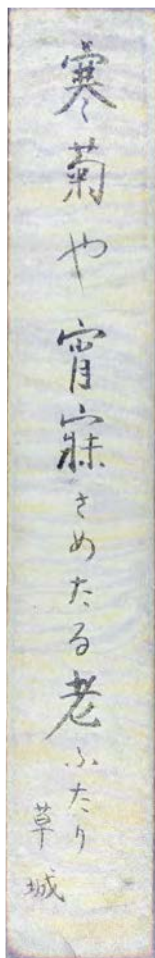 寒菊や宵寐さめたる老ふたり
草城